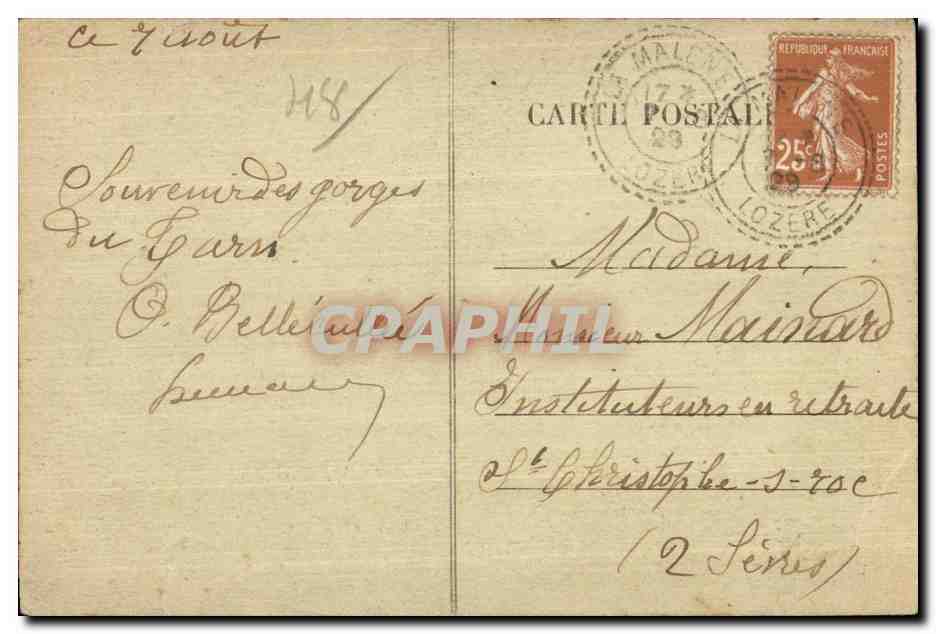 ce 7 août
418
Souvenir des gorges
du Tarn
CARTE POSTALE
REPUBLIQUE FRANÇAISE
25c
POSTES
LA MALENE
17
29
LOZERE
29
LOZERE
CPAPHIL
Madame,
Monsieur Mainard
Instituteurs en retraite
St Christophe-s-roc
(2 Sèvres)